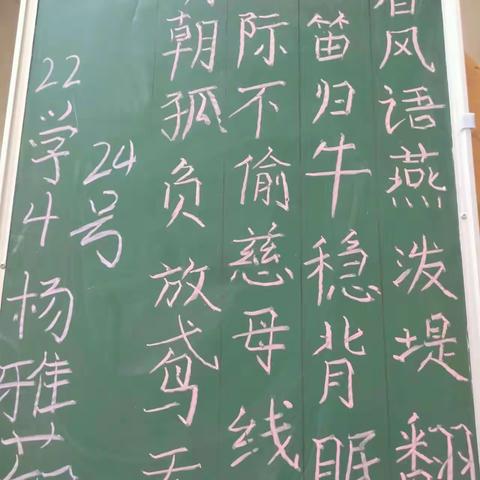 春风语燕泼堤翻
笛归牛稳背眠
际不偷慈母线
朝孤负放鸢
24号
22学4杨雅